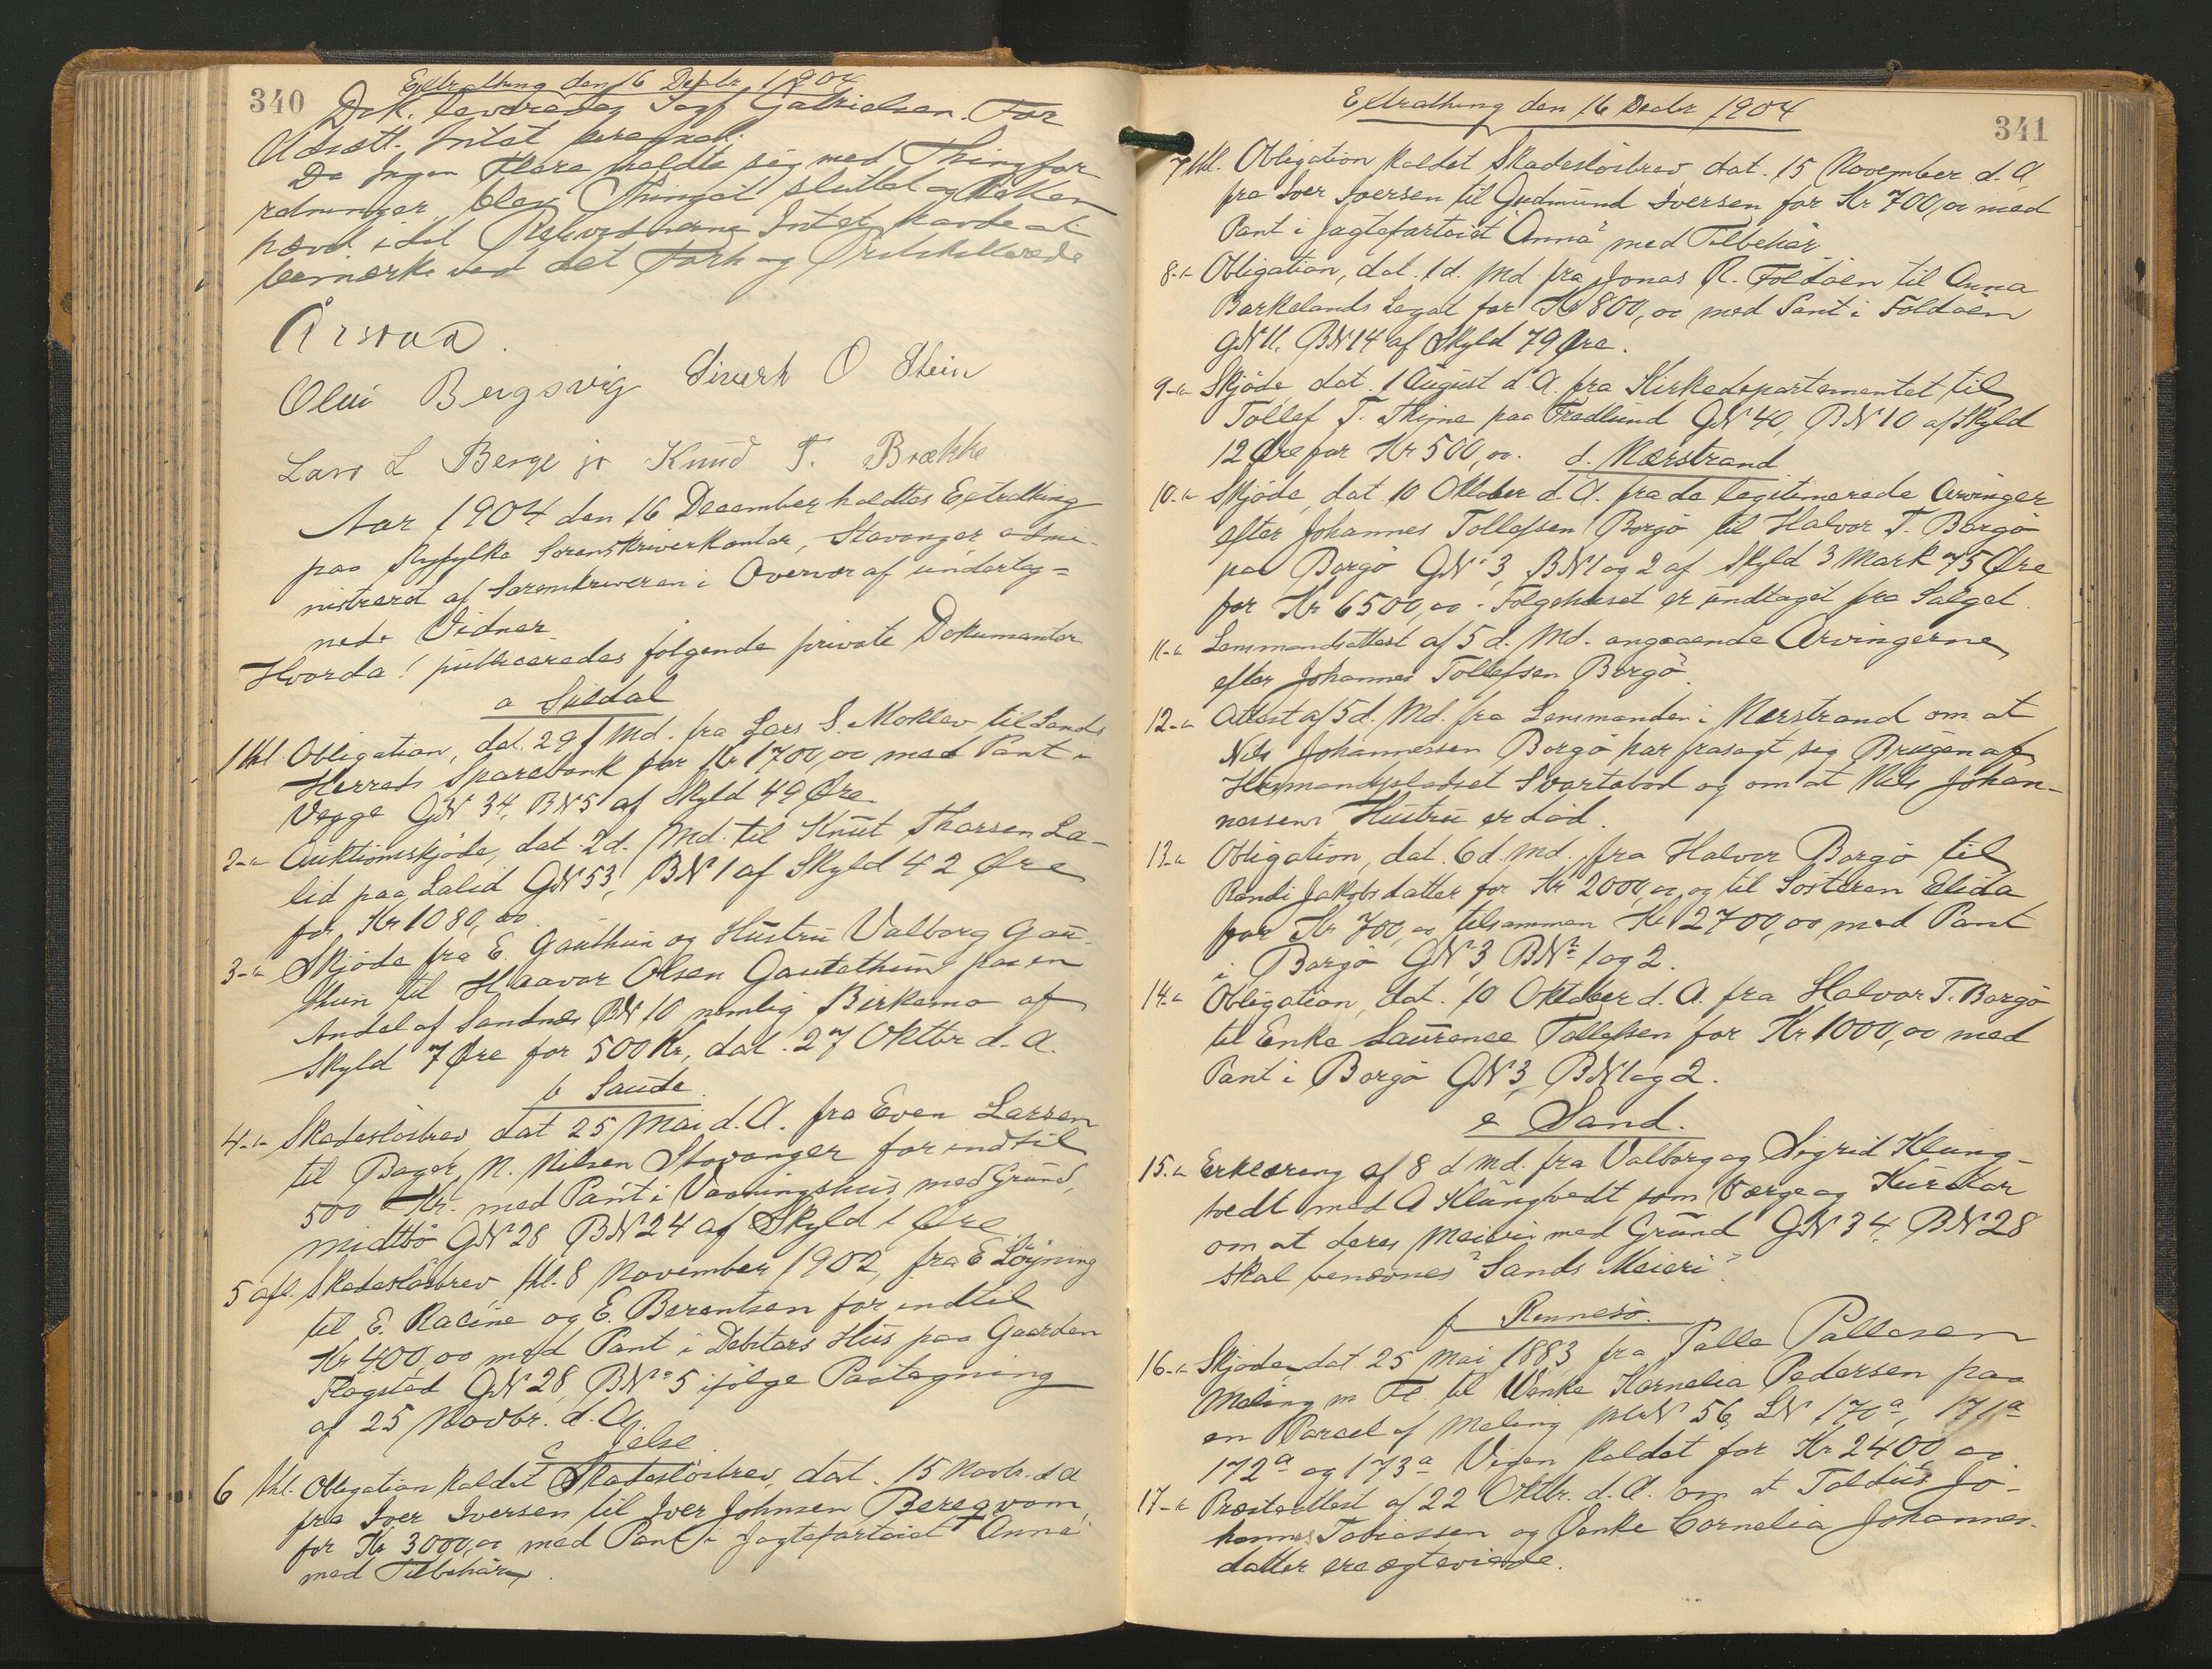 340
Extrathing den 16 Decbr. 1904
Dok. leveredes Sagf Gabrielsen. For
Udsætt. Intet
Da Ingen Flere meldte sig med Thingfor
retninger, blev Thinget sluttet og Retten
hævet idet Retsvidnerne Intet havde at
bemærke ved det Forh og Protokollerede
Årstad.
Olai Bergsvig Siverk O Stein
Lars L Berge jr Knud T. Brække
Aar 1904 den 16 December holdtes Extrathing
paa Ryfylke Sorenskriverkontor, Stavanger admi-
nistreret af Sorenskriveren i Overvær af underteg=
nede Vidner.
Hvorda! publiceredes følgende private Dokumenter
a Suldal
1 thl. Obligation, dat. 29 f Md. fra Lars S. Moklev til Sands
Herreds Sparebank for Kr 1700,00 med Pant i
Vegge GN 34, BN 5 af Skyld 49 Øre.
2-"- Auktionsskjøde, dat 2 d. Md. til Knut Thorsen La-
lid paa Lalid GN 53, BN 1 af Skyld 42 Øre
for Kr 1080,00.
3-"- Skjøde fra E. Gauthun og Hustru Valborg Gau-
thun til Haavar Olsen Gautethun paa en
Andel af Sandnes BN 10 nemlig Birkemo af
Skyld 7 Øre for 500 Kr, dat. 27 Oktbr d. A.
b Saude.
4-"- Skadesløsbrev dat 25 Mai d. A. fra Even Larsen
til Bager N. Nilsen Stavanger for indtil
500 Kr. med Pant i Vaaningshus med Grund,
Midtbø GN 28 BN 24 af Skyld 1 Øre
5 afl. Skadesløsbrev, thl. 8 November 1902, fra E Løining
til E. Racine og E. Berentsen for indtil
Kr 400,00 med Pant i Debitors Hus paa Gaarden
Røgstad GN 28, BN 5 ifølge Paategning
af 25 Novbr. d. A.
c Jelse.
6 thl. Obligation kaldet Skadesløsbrev, dat. 15 Novbr. d A
fra Iver Iversen til Iver Johnsen Beregvam
for Kr 3000,00 med Pant i Jagtefartøiet "Anna"
med Tilbehør.
Extrathing den 16 Decbr 1904
341
7 thl. Obligation kaldet Skadesløsbrev, dat. 15 November d. A
fra Iver Iversen til Gudmund Iversen for Kr 700,00 med
Pant i Jagtefartøiet "Anna" med Tilbehør
8-"- Obligation, dat. 1 d. Md. fra Jonas R. Foldøen til Anna
Barkelands Legat for Kr 800,00 med Pant i Foldøen
GN 11, BN 14 af Skyld 79 Øre.
9-"- Skjøde, dat. 1 August d. A. fra Kirkedepartementet til
Tollef T. Thijne paa Fredlund GN 40, BN 10 af Skyld
12 Øre for Kr 500,00.
d. Nærstrand
10-"- Skjøde, dat 10 Oktober d. A. fra de legitimerede Arvinger
efter Johannes Tollefsen Borgø til Halvor T. Borgø
paa Borgø GN 3, BN 1 og 2 af Skyld 3 Mark 75 Øre
for Kr 6500,00. Folgehuset er undtaget fra Salget.
11-"- Lensmandsattest af 5 d. Md. angaaende Arvingerne
efter Johannes Tollefsen Borgø.
12-"- Attest af 5 d. Md. fra Lensmanden i Nærstrand om at
Nils Johannessen Borgø har frasagt sig Brugen af
Husmandspladset Svartabod og om at Nils Johan-
nessens Hustru er død.
13-"- Obligation, dat. 6 d. Md., fra Halvor Borgø til
Randi Jakobsdatter for Kr 2000,00 og til Søsteren Elida
for Kr 700,00 tilsammen Kr 2700,00 med Pant
i Borgø GN 3 BN 1 og 2.
14-"- Obligation, dat. 10 Oktober d. A. fra Halvor T. Borgø
til Enke Laurence Tollefsen for Kr 1000,00 med
Pant i Borgø GN 3, BN 1 og 2.
e Sand.
15-"- Erklæring af 8 d Md. fra Valborg og Sigrid Klung-
tvedt med A Klungtvedt som Værge og Kurator
om at deres Meieri med Grund GN 34, BN 28
skal benævnes "Sands Meieri".
f Rennesø.
16-"- Skjøde, dat 25 Mai 1883 fra Palle Pallesen
Meling m Fl. til Wenke Kornelia Pedersen paa
en Parcel af Meling MN 56, LN 170a, 171a
172a og 173a Vigen kaldet for Kr 2400,00.
17-"- Præsteattest af 22 Oktbr. d. A. om at Toldius Jo-
hannes Tobiassen og Venke Cornelia Johannes-
datter ere ægteviede.